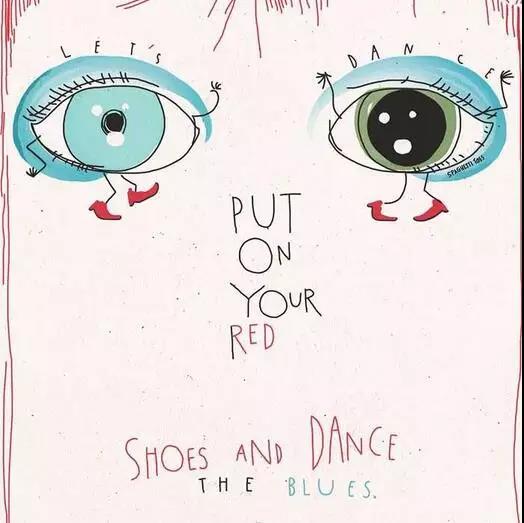 LET'S DANCE
SPAGHETTI TOES
PUT
ON
YOUR
RED
SHOES AND DANCE
THE BLUES.